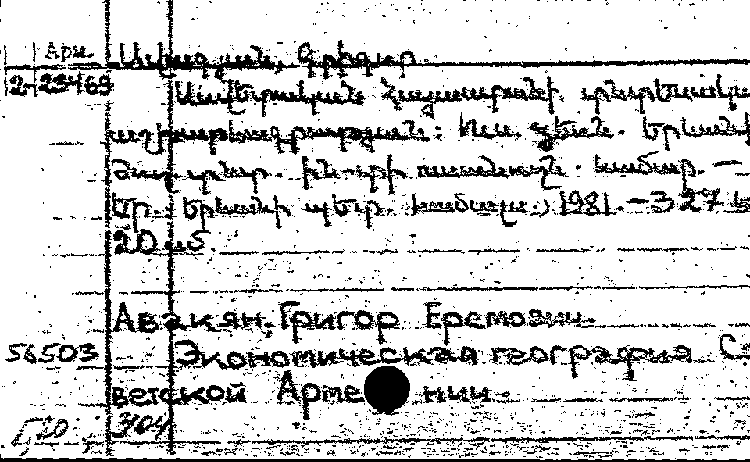 Արմ. Ավագյան, Գրիգոր.
2-23469
Սովետական Հայաստանի տնտեսակ
աշխարհագրություն: Ուս. ձեռն. Երևանի
ժող. տնտ. ին-տի ուսանողն. համար. —
Եր. Երևանի պետ. համալս., 1981. – 327 է
20 սմ.
Авакян, Григор Еремович.
56503 Экономическая география Со
ветской Арме нии.
304